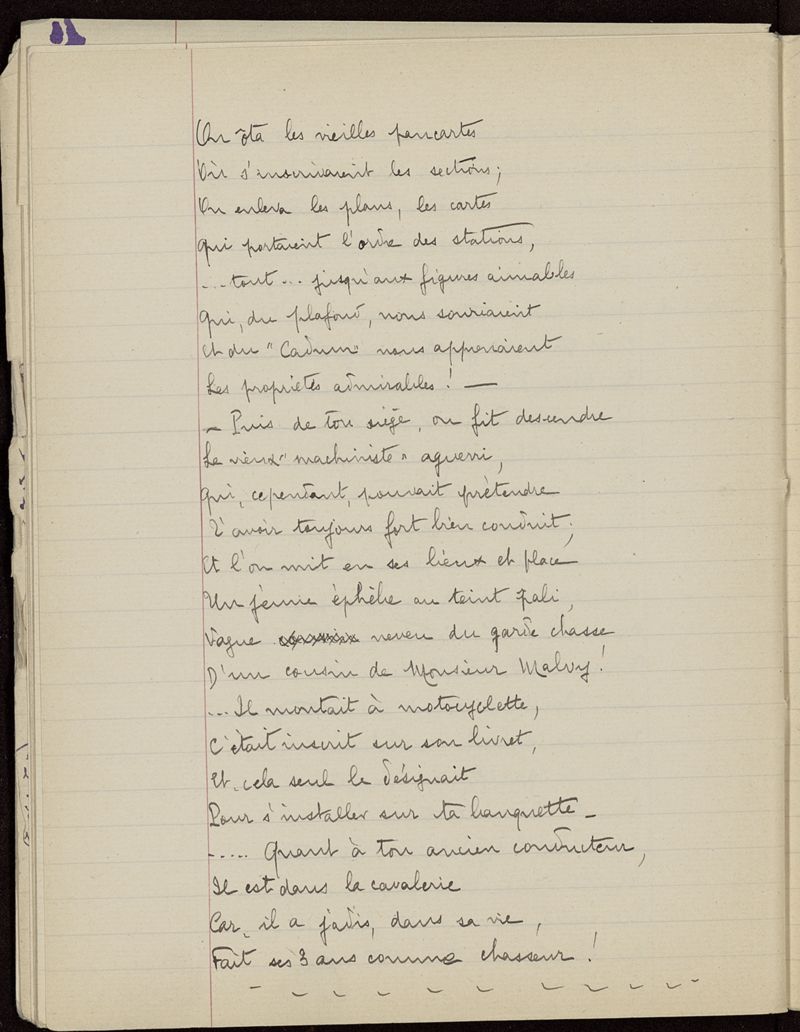 On ôta les vieilles pancartes
Où s'inscrivaient les sections;
On enleva les plans, les cartes
Qui portaient l'ordre des stations,
... tout ... jusqu'aux figures aimables
Qui, du plafond, nous souriaient
Et du "Cadum" nous apprenaient
Les propriétés admirables! —
— Puis de ton siège, on fit descendre
Le vieux "machiniste" aguerri,
Qui, cependant, pouvait prétendre
T'avoir toujours fort bien conduit;
Et l'on mit en ses lieux et place
Un jeune éphèbe au teint pali,
Vague neveu du garde chasse
D'un cousin de Monsieur Malvy!
... Il montait à motocyclette,
C'était inscrit sur son livret,
Et cela seul le désignait
Pour s'installer sur ta banquette —
..... Quant à ton ancien conducteur,
Il est dans la cavalerie
Car, il a jadis, dans sa vie,
Fait ses 3 ans comme chasseur!